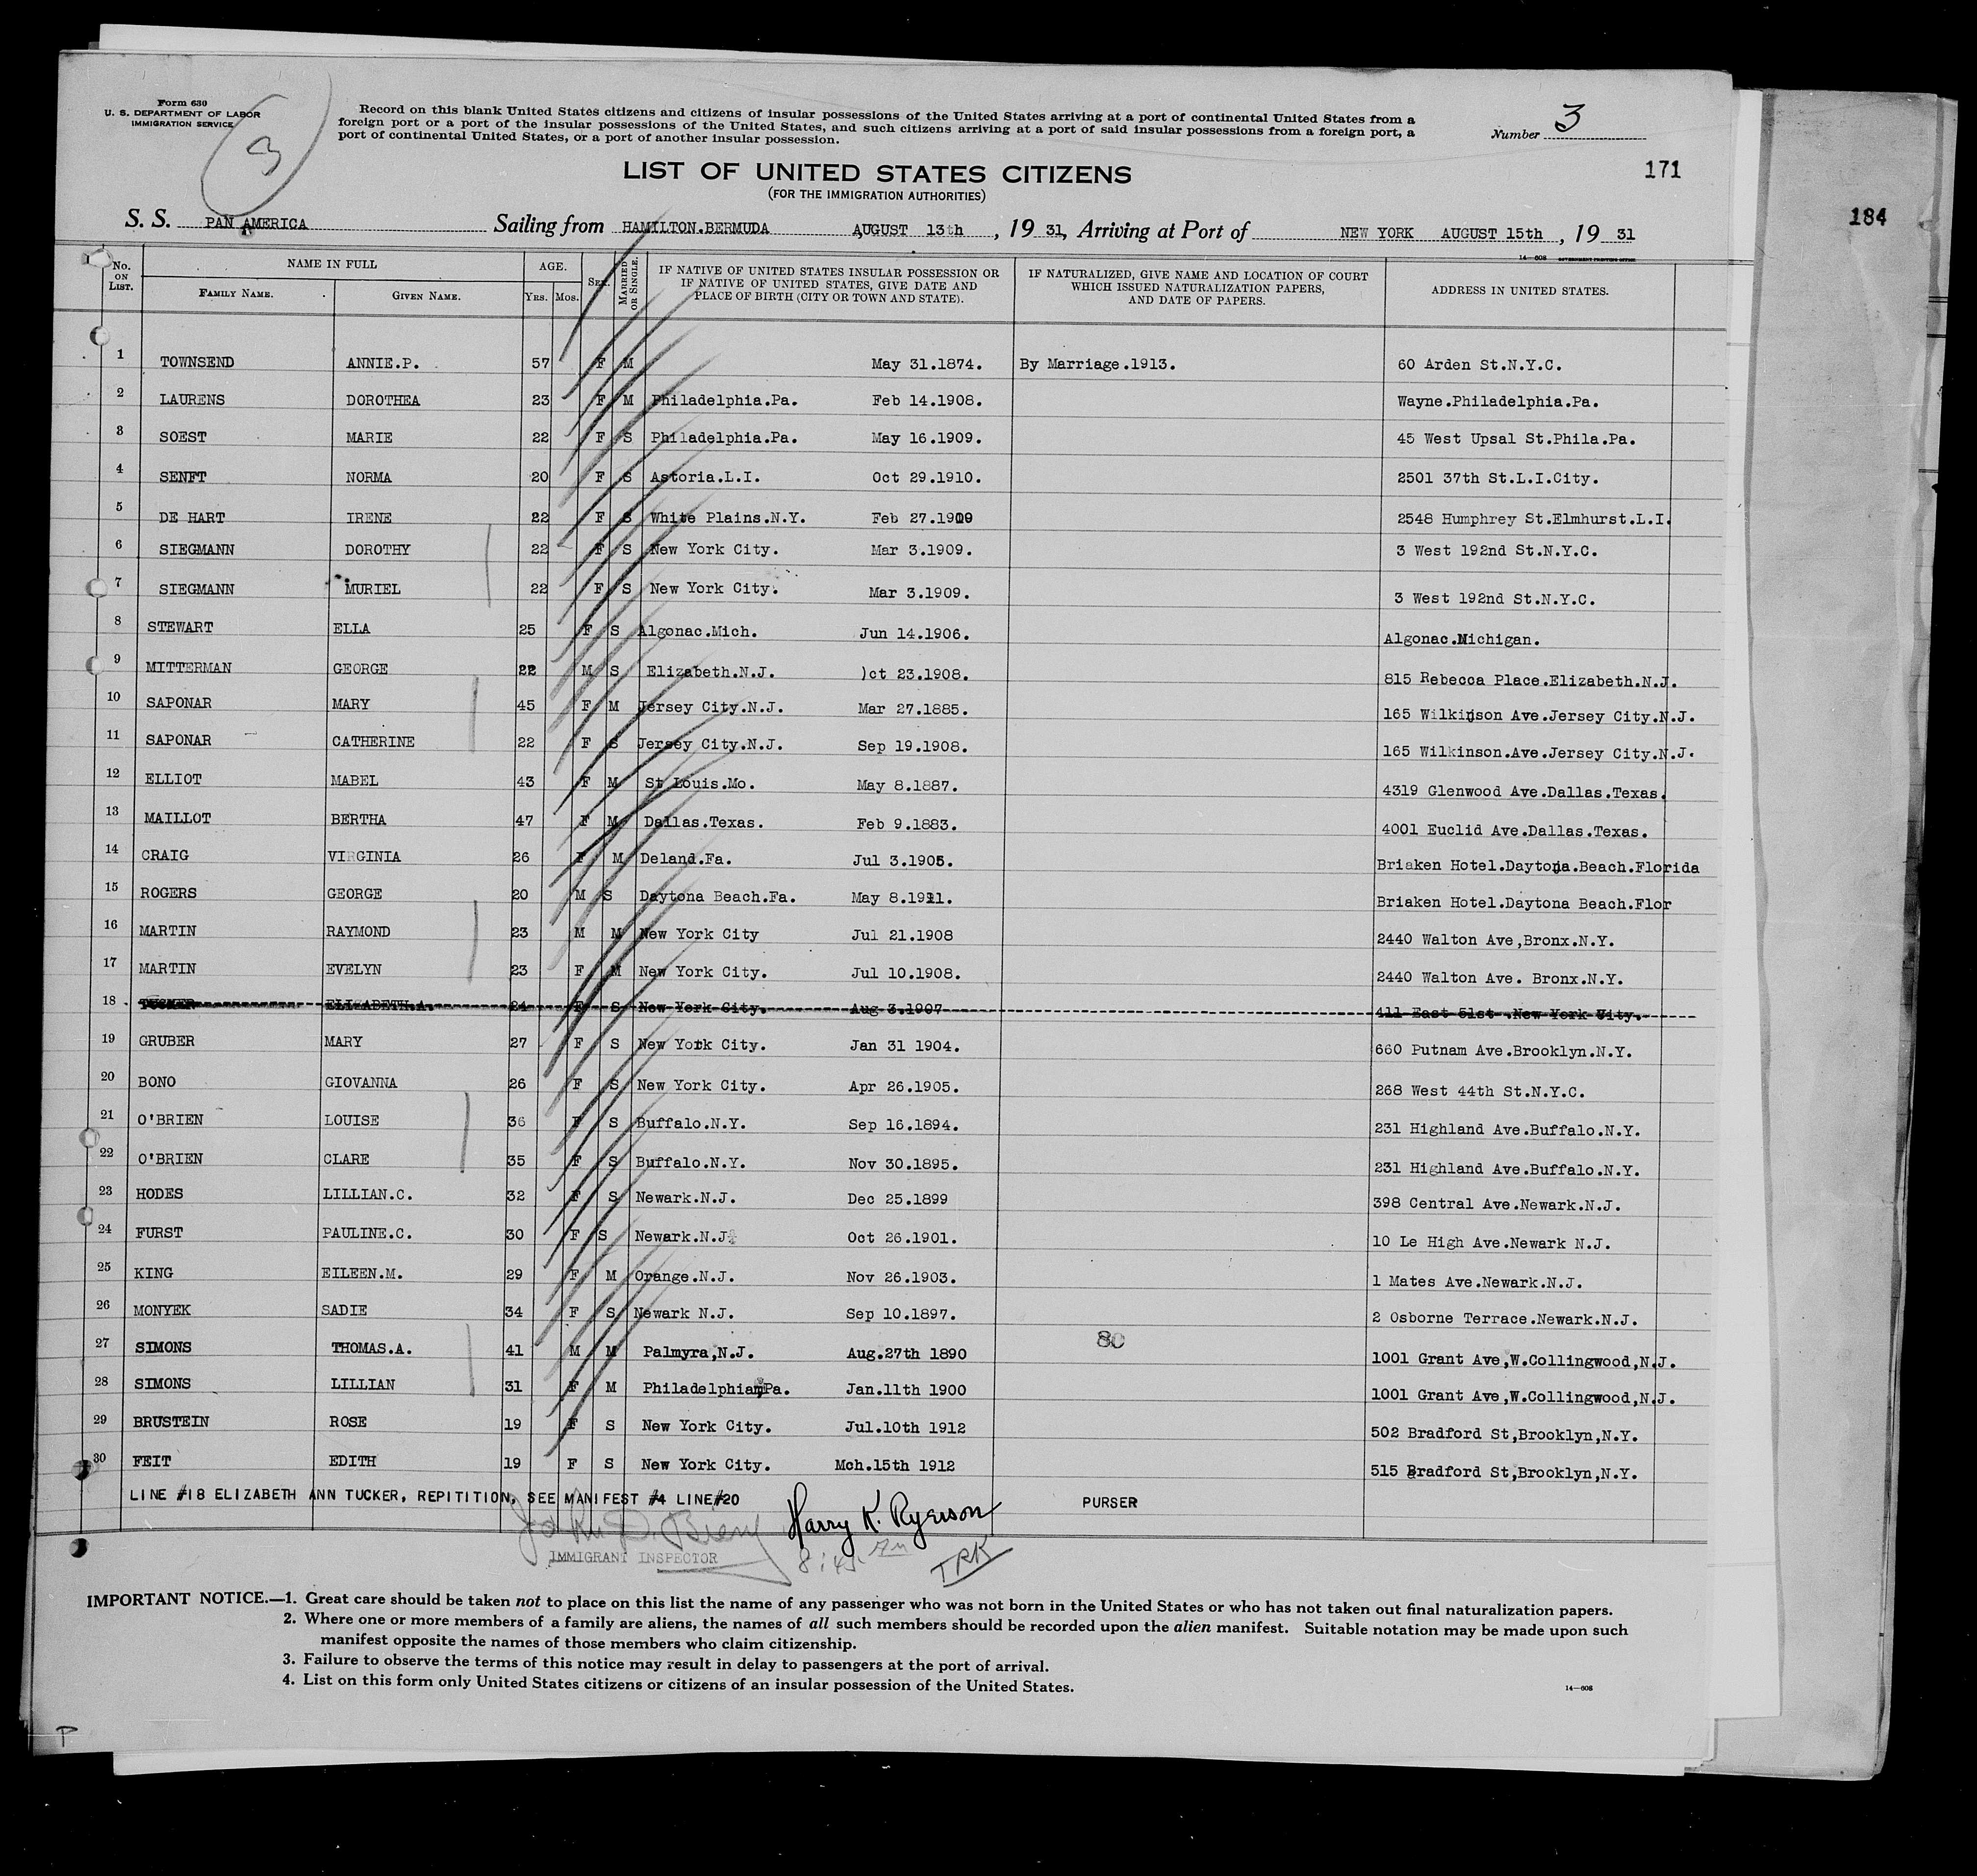 Form 630
U. S. DEPARTMENT OF LABOR
IMMIGRATION SERVICE
3
Record on this blank United States citizens and citizens of insular possessions of the United States arriving at a port of continental United States from a
foreign port or a port of the insular possessions of the United States, and such citizens arriving at a port of said insular possessions from a foreign port, a
port of continental United States, or a port of another insular possession.
Number 3
LIST OF UNITED STATES CITIZENS
(FOR THE IMMIGRATION AUTHORITIES)
171
184
S. S. PAN AMERICA Sailing from HAMILTON.BERMUDA AUGUST 13th, 19 31, Arriving at Port of NEW YORK AUGUST 15th, 19 31
14-608 GOVERNMENT PRINTING OFFICE
No. ON LIST. NAME IN FULL FAMILY NAME. GIVEN NAME. AGE. YRS. MOS. SEX. MARRIED OR SINGLE. IF NATIVE OF UNITED STATES INSULAR POSSESSION OR IF NATIVE OF UNITED STATES, GIVE DATE AND PLACE OF BIRTH (CITY OR TOWN AND STATE). IF NATURALIZED, GIVE NAME AND LOCATION OF COURT WHICH ISSUED NATURALIZATION PAPERS, AND DATE OF PAPERS. ADDRESS IN UNITED STATES.
1 TOWNSEND ANNIE.P. 57 F M May 31.1874. By Marriage.1913. 60 Arden St.N.Y.C.
2 LAURENS DOROTHEA 23 F M Philadelphia.Pa. Feb 14.1908. Wayne.Philadelphia.Pa.
3 SOEST MARIE 22 F S Philadelphia.Pa. May 16.1909. 45 West Upsal St.Phila.Pa.
4 SENFT NORMA 20 F S Astoria.L.I. Oct 29.1910. 2501 37th St.L.I.City.
5 DE HART IRENE 22 F S White Plains.N.Y. Feb 27.1909 2548 Humphrey St.Elmhurst.L.I.
6 SIEGMANN DOROTHY 22 F S New York City. Mar 3.1909. 3 West 192nd St.N.Y.C.
7 SIEGMANN MURIEL 22 F S New York City. Mar 3.1909. 3 West 192nd St.N.Y.C.
8 STEWART ELLA 25 F S Algonac.Mich. Jun 14.1906. Algonac.Michigan.
9 MITTERMAN GEORGE 22 M S Elizabeth.N.J. )ct 23.1908. 815 Rebecca Place.Elizabeth.N.J.
10 SAPONAR MARY 45 F M Jersey City.N.J. Mar 27.1885. 165 Wilkinson Ave.Jersey City.N.J.
11 SAPONAR CATHERINE 22 F S Jersey City.N.J. Sep 19.1908. 165 Wilkinson.Ave.Jersey City.N.J.
12 ELLIOT MABEL 43 F M St Louis.Mo. May 8.1887. 4319 Glenwood Ave.Dallas.Texas.
13 MAILLOT BERTHA 47 F M Dallas.Texas. Feb 9.1883. 4001 Euclid Ave.Dallas.Texas.
14 CRAIG VIRGINIA 26 F M Deland.Fa. Jul 3.1905. Briaken Hotel.Daytona.Beach.Florida
15 ROGERS GEORGE 20 M S Daytona Beach.Fa. May 8.1911. Briaken Hotel.Daytona Beach.Flor
16 MARTIN RAYMOND 23 M M New York City Jul 21.1908 2440 Walton Ave,Bronx.N.Y.
17 MARTIN EVELYN 23 F M New York City. Jul 10.1908. 2440 Walton Ave. Bronx.N.Y.
18 TUCKER ELIZABETH.A. 24 F S New York City. Aug 3.1907 411 East 51st .New York City.
19 GRUBER MARY 27 F S New York City. Jan 31 1904. 660 Putnam Ave.Brooklyn.N.Y.
20 BONO GIOVANNA 26 F S New York City. Apr 26.1905. 268 West 44th St.N.Y.C.
21 O'BRIEN LOUISE 36 F S Buffalo.N.Y. Sep 16.1894. 231 Highland Ave.Buffalo.N.Y.
22 O'BRIEN CLARE 35 F S Buffalo.N.Y. Nov 30.1895. 231 Highland Ave.Buffalo.N.Y.
23 HODES LILLIAN.C. 32 F S Newark.N.J. Dec 25.1899 398 Central Ave.Newark.N.J.
24 FURST PAULINE.C. 30 F S Newark.N.J. Oct 26.1901. 10 Le High Ave.Newark N.J.
25 KING EILEEN.M. 29 F M Orange.N.J. Nov 26.1903. 1 Mates Ave.Newark.N.J.
26 MONYEK SADIE 34 F S Newark N.J. Sep 10.1897. 2 Osborne Terrace.Newark.N.J.
80
27 SIMONS THOMAS.A. 41 M M Palmyra,N.J. Aug.27th 1890 1001 Grant Ave,W.Collingwood,N.J.
28 SIMONS LILLIAN 31 F M Philadelphia,Pa. Jan.11th 1900 1001 Grant Ave,W.Collingwood,N.J.
29 BRUSTEIN ROSE 19 F S New York City. Jul.10th 1912 502 Bradford St,Brooklyn,N.Y.
30 FEIT EDITH 19 F S New York City. Mch.15th 1912 515 Bradford St,Brooklyn,N.Y.
LINE #18 ELIZABETH ANN TUCKER, REPITITION, SEE MANIFEST #4 LINE#20
Harry K. Ryerson PURSER
John D.
IMMIGRANT INSPECTOR
8:45
TRK
IMPORTANT NOTICE.—1. Great care should be taken not to place on this list the name of any passenger who was not born in the United States or who has not taken out final naturalization papers.
2. Where one or more members of a family are aliens, the names of all such members should be recorded upon the alien manifest. Suitable notation may be made upon such
manifest opposite the names of those members who claim citizenship.
3. Failure to observe the terms of this notice may result in delay to passengers at the port of arrival.
4. List on this form only United States citizens or citizens of an insular possession of the United States.
14—608
P